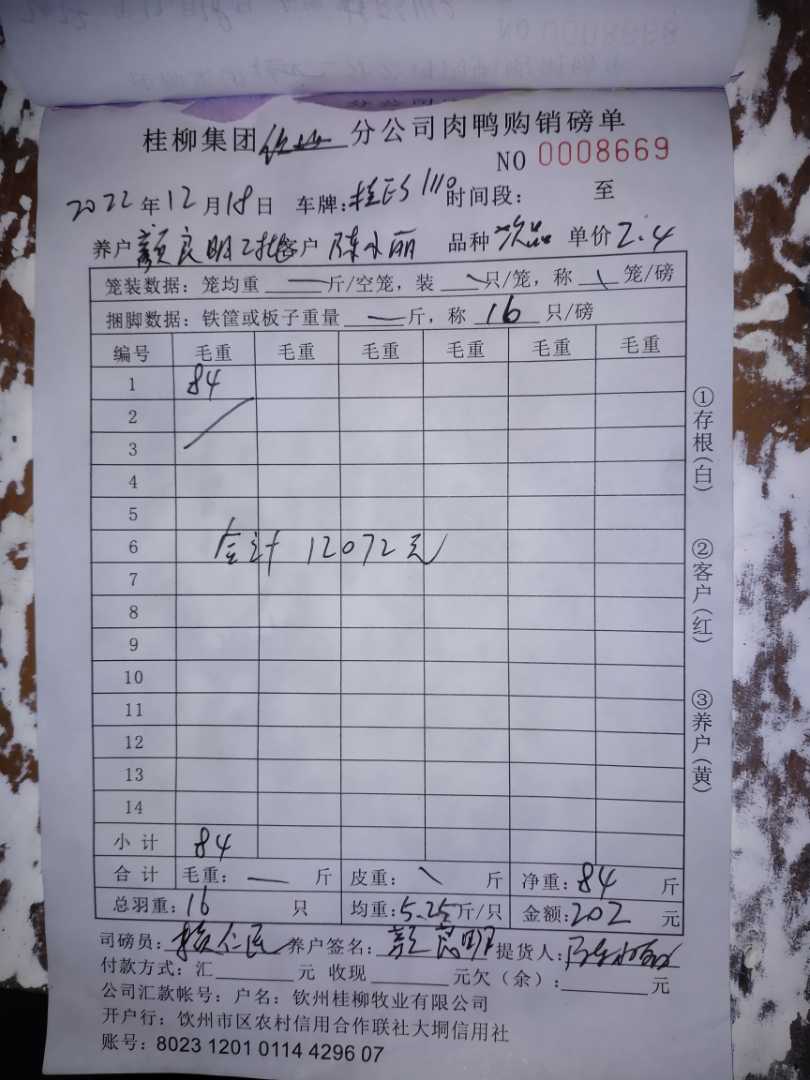 桂柳集团钦州分公司肉鸭购销磅单
NO 0008669
2022年12月18日 车牌:桂 1110 时间段: 至
养户 颜良明2批 客户 陈小丽 品种 次品 单价 2.4
笼装数据:笼均重 — 斤/空笼,装 \ 只/笼,称 \ 笼/磅
捆脚数据:铁筐或板子重量 — 斤,称 16 只/磅
编号 毛重 毛重 毛重 毛重 毛重 毛重
1 84
2
3
4
5
6 合计 12072元
7
8
9
10
11
12
13
14
小计 84
合计 毛重: — 斤 皮重: \ 斤 净重:84 斤
总羽重:16 只 均重:5.25斤/只 金额:202 元
司磅员: 养户签名:颜良明 提货人:陈小丽
付款方式:汇 元 收现 元欠(余): 元
公司汇款帐号:户名:钦州桂柳牧业有限公司
开户行:饮州市区农村信用合作联社大垌信用社
账号:8023 1201 0114 4296 07
①存根(白)
②客户(红)
③养户(黄)